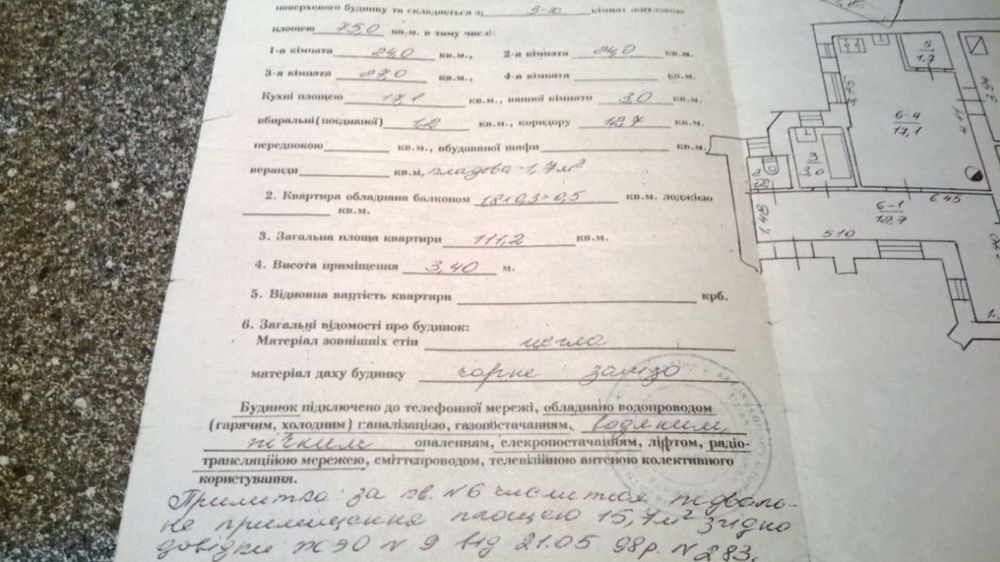 поверхового будинку та складається з 3-х кімнат житловою
площею 75,0 кв.м. в тому числі:
1-а кімната 24,0 кв.м., 2-а кімната 24,0 кв.м.
3-я кімната 27,0 кв.м., 4-а кімната кв.м.
Кухні площею 17,1 кв.м., ванної кімнати 3,0 кв.м.
вбиральні (поєднаної) 1,2 кв.м., коридору 12,7 кв.м.
передпокою кв.м., вбудованої шафи кв.м.
веранда кв.м, кладова - 1,7 м²
2. Квартира обладнана балконом 1,8×0,3=0,5 кв.м. лоджією
кв.м.
3. Загальна площа квартири 111,2 кв.м.
4. Висота приміщення 3,40 м.
5. Відновна вартість квартири крб.
6. Загальні відомості про будинок:
Матеріал зовнішніх стін цегла
матеріал даху будинку чорне залізо
Будинок підключено до телефонної мережі, обладнано водопроводом
(гарячим, холодним) каналізацією, газопостачанням, водяним
пічним опаленням, елекропостачанням, ліфтом, радіо-
трансляційною мережею, сміттєпроводом, телевізійною антеною колективного
користування.
Примітка: за кв. N6 числится підваль-
не приміщення площею 15,7 м² згідно
довідки ЖЭО N 9 від 21.05.98р. N 283.
5
1,7
6-4
17,1
4.41
3
3,0
2
1,2
6-1
12,7
6.45
1.48
5.10